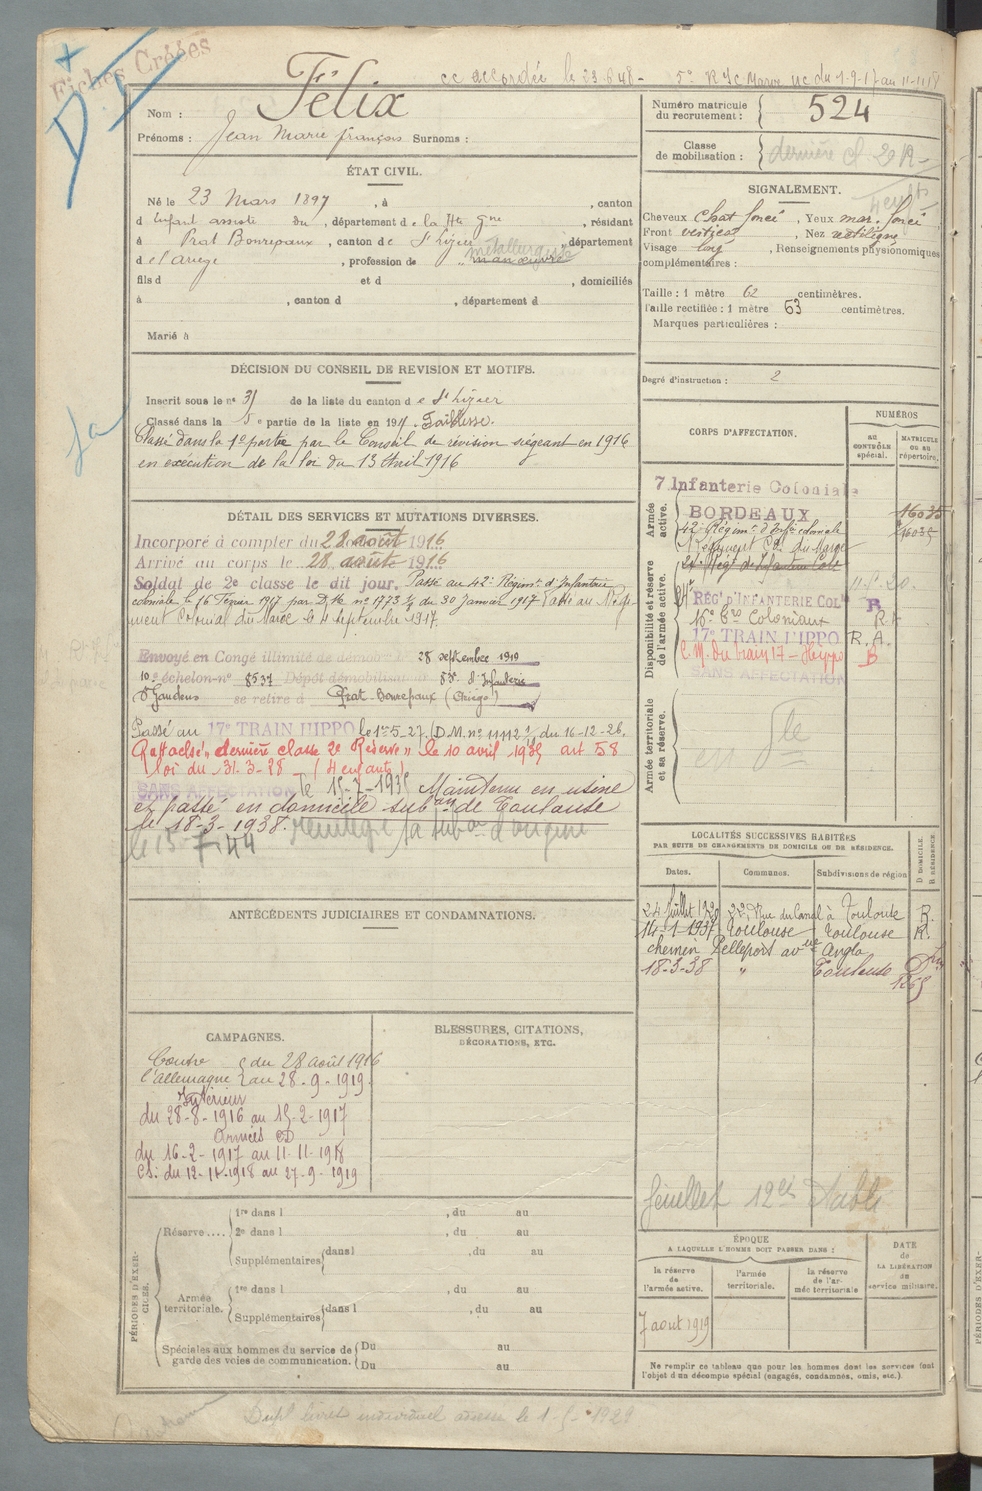 Fiches Créées
cc accordée le 23.6.48 -
5e R Ic Maroc UC du 1-9-17 au 11-11-18
Nom : Félix
Prénoms : Jean Marie françois Surnoms :
ÉTAT CIVIL.
Né le 23 Mars 1897, à , canton
d Enfant assisté du , département de la Hte Gne, résidant
à Prat Bonrepaux, canton de St Lizier département
de l'ariege, profession de manœuvre métallurgiste
fils d et d , domiciliés
à , canton d , département d
Marié à
DÉCISION DU CONSEIL DE REVISION ET MOTIFS.
Inscrit sous le n° 31 de la liste du canton de St Lizier
Classé dans la 5e partie de la liste en 191 . Faiblesse.
Classé dans la 1e partie par le Conseil de révision siégeant en 1916
en exécution de la loi du 13 Avril 1916
DÉTAIL DES SERVICES ET MUTATIONS DIVERSES.
Incorporé à compter du 28 août 1916
Arrivé au corps le 28 août 1916
Soldat de 2e classe le dit jour. Passé au 42e Régimt d'Infanterie
coloniale le 16 Février 1917 par D.M. n° 1773 1/4 du 30 Janvier 1917 Passé au Régi-
ment Colonial du Maroc le 4 septembre 1917.
Envoyé en Congé illimité de démob 28 septembre 1919
10e échelon n° 8537 Dépôt démobilisateur 83e d'Infanterie
St Gaudens se retire à Prat-Bonrepaux (Ariège)
Passé au 17e TRAIN HIPPO le 1er-5-27. (D.M. n° 11112 du 16-12-26.
Rattaché "dernière classe 2e Réserve" le 10 avril 1935 art 58
loi du 31-3-28 - (4 enfants)
SANS AFFECTATION le 15-7-1935 Maintenu en usine
et passé en domicile subon de Toulouse
le 18-3-1938. réintégré sa subon d'origine
le 15-7-44
ANTÉCÉDENTS JUDICIAIRES ET CONDAMNATIONS.
CAMPAGNES.
Contre du 28 août 1916
l'Allemagne au 28.9.1919.
Intérieur
du 28-8-1916 au 15-2-1917
Armées CD
du 16-2-1917 au 11-11-1918
CS: du 12-11-1918 au 27-9-1919
BLESSURES, CITATIONS,
DÉCORATIONS, ETC.
PÉRIODES D'EXER-
CICES.
Réserve.... 1re dans l , du au
2e dans l , du au
Supplémentaires dans l , du au
Armée
territoriale. 1re dans l , du au
Supplémentaires dans l , du au
Spéciales aux hommes du service de
garde des voies de communication. Du au
Du au
Numéro matricule
du recrutement : 524
Classe
de mobilisation : dernière cl. 2e R -
4 enfts
SIGNALEMENT.
Cheveux Chat foncé, Yeux mar. foncé
Front vertical, Nez rectiligne
Visage long, Renseignements physionomiques
complémentaires :
Taille : 1 mètre 62 centimètres.
Taille rectifiée : 1 mètre 63 centimètres.
Marques particulières :
Degré d'instruction : 2
CORPS D'AFFECTATION.
NUMÉROS
AU
CONTRÔLE
spécial.
MATRICULE
ou au
répertoire.
Armée
active.
7 Infanterie Coloniale
BORDEAUX 16035
42e Régimt d'Infie coloniale 16035
Régiment Cal du Maroc
Disponibilité et réserve
de l'armée active.
24e Régt d'Infanterie Cole
24e RÉGt D'INFANTERIE COLle R
16e Coloniaux R.A
17e TRAIN HIPPO R.A.
C.M. du train 17 - Hippo B
SANS AFFECTATION
Armée territoriale
et sa réserve.
LOCALITÉS SUCCESSIVES HABITÉES
PAR SUITE DE CHANGEMENTS DE DOMICILE OU DE RÉSIDENCE.
Dates. Communes. Subdivisions de région
D. DOMICILE.
R. RÉSIDENCE.
24 Juillet 1920 22, Rue du Canal à Toulouse R.
14-1-1937 Toulouse Toulouse R.
chemin Pelleport avue Anglo
18-3-38 " Toulouse D
feuillet 12 els établi
ÉPOQUE
A LAQUELLE L'HOMME DOIT PASSER DANS :
DATE
de
LA LIBÉRATION
du
service militaire.
la réserve
de
l'armée active.
l'armée
territoriale.
la réserve
de l'ar-
mée territoriale
7 aout 1919
Ne remplir ce tableau que pour les hommes dont les services font
l'objet d'un décompte spécial (engagés, condamnés, omis, etc.).
Dupl livret individuel adressé le 1-5-1929